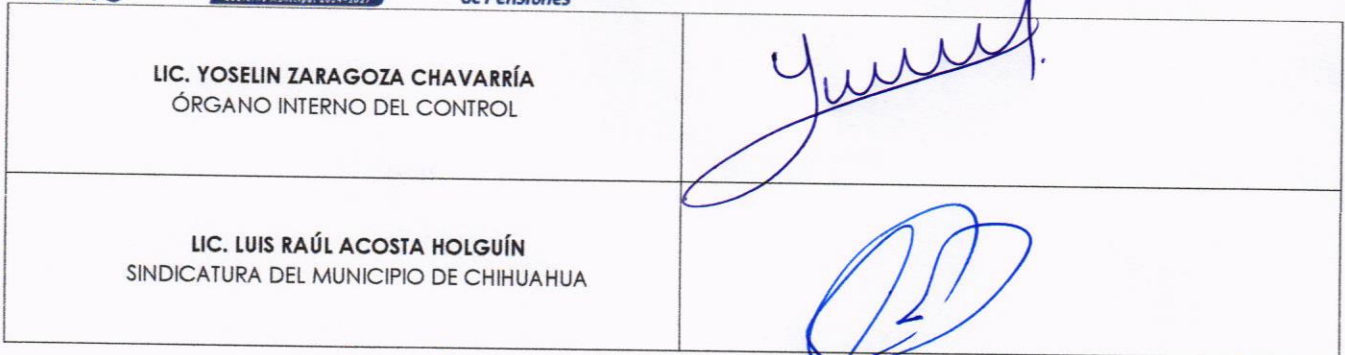 de Pensiones
LIC. YOSELIN ZARAGOZA CHAVARRÍA
ÓRGANO INTERNO DEL CONTROL
LIC. LUIS RAÚL ACOSTA HOLGUÍN
SINDICATURA DEL MUNICIPIO DE CHIHUAHUA